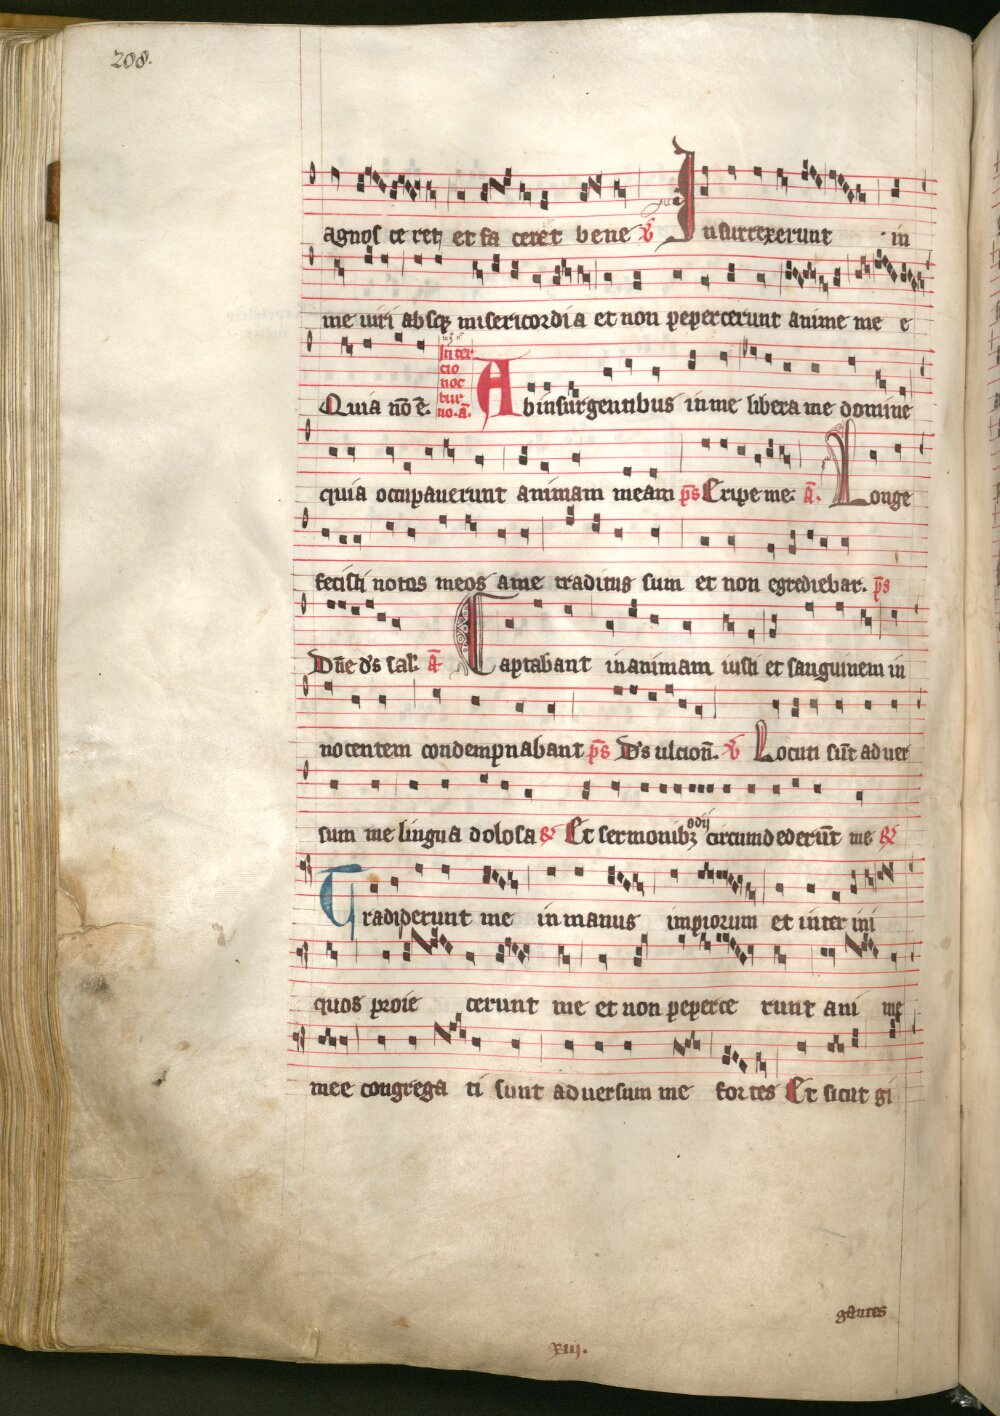 208.
agnosceret et faceret bene ℣ Insurrexerunt in
me uiri absq misericordia et non pepercerunt anime mee
Quia nō ē. In ter cio noc tur no. ā. Ab insurgentibus in me libera me domine
quia occupauerunt animam meam p̄s Eripe me. ā. Longe
fecisti notos meos a me traditus sum et non egrediebar. p̄s
Dn̄e d's sal'. ā Captabant in animam iusti et sanguinem in
nocentem condempnabant p̄s D's ulcion̄. ℣ Locuti sūt aduer
sum me lingua dolosa & Et sermonibꝫ odij circumdederūt me &
Tradiderunt me in manus impiorum et inter ini
quos proiecerunt me et non pepercerunt anime
mee congregati sunt aduersum me fortes Et sicut gi
gantes
xiij.